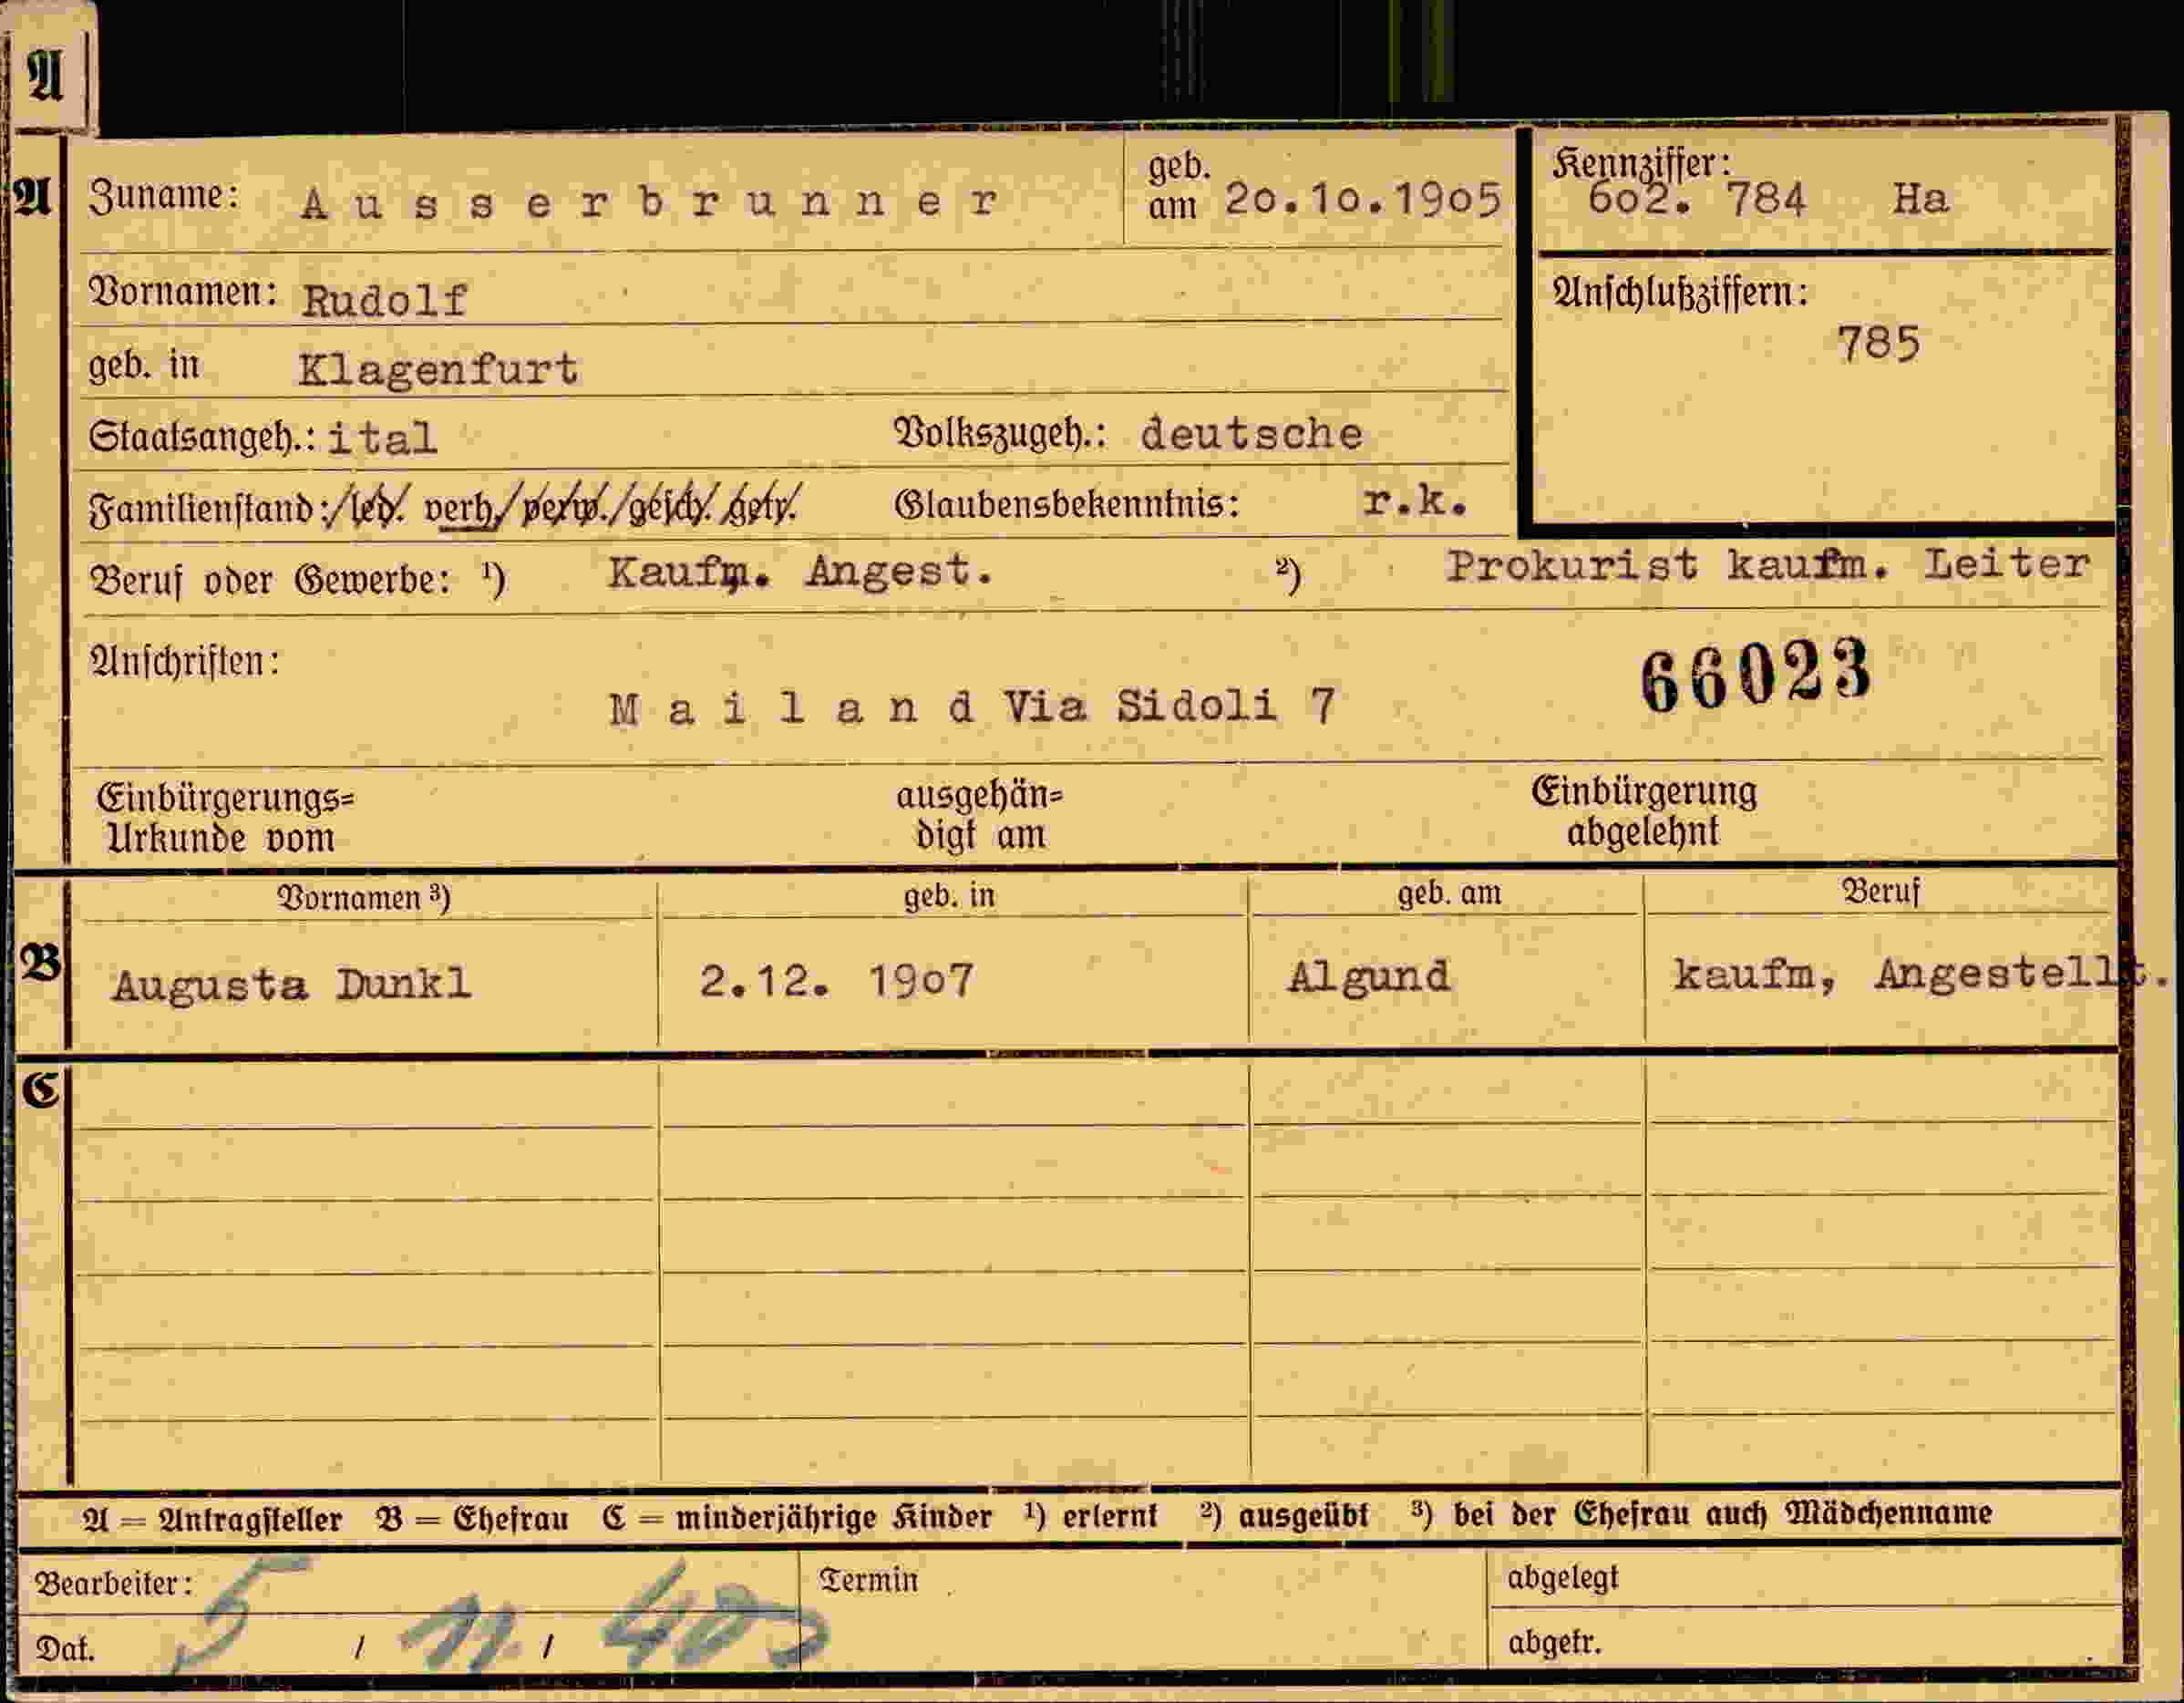 A
A
Zuname: Ausserbrunner geb. am 20.10.1905
Kennziffer: 602. 784 Ha
Vornamen: Rudolf
Anschlußziffern:
785
geb. in Klagenfurt
Staatsangeh.: ital Volkszugeh.: deutsche
Familienstand: led. verh. verw. gesch. getr. Glaubensbekenntnis: r.k.
Beruf oder Gewerbe: ¹) Kaufm. Angest. ²) Prokurist kaufm. Leiter
Anschriften:
66023
Mailand Via Sidoli 7
Einbürgerungs= ausgehän= Einbürgerung
Urkunde vom digt am abgelehnt
Vornamen ³) geb. in geb. am Beruf
B Augusta Dunkl 2.12. 1907 Algund kaufm, Angestellt.
C
A = Antragsteller B = Ehefrau C = minderjährige Kinder ¹) erlernt ²) ausgeübt ³) bei der Ehefrau auch Mädchenname
Bearbeiter: Termin abgelegt
Dat. 5 / 11 / 40 abgetr.